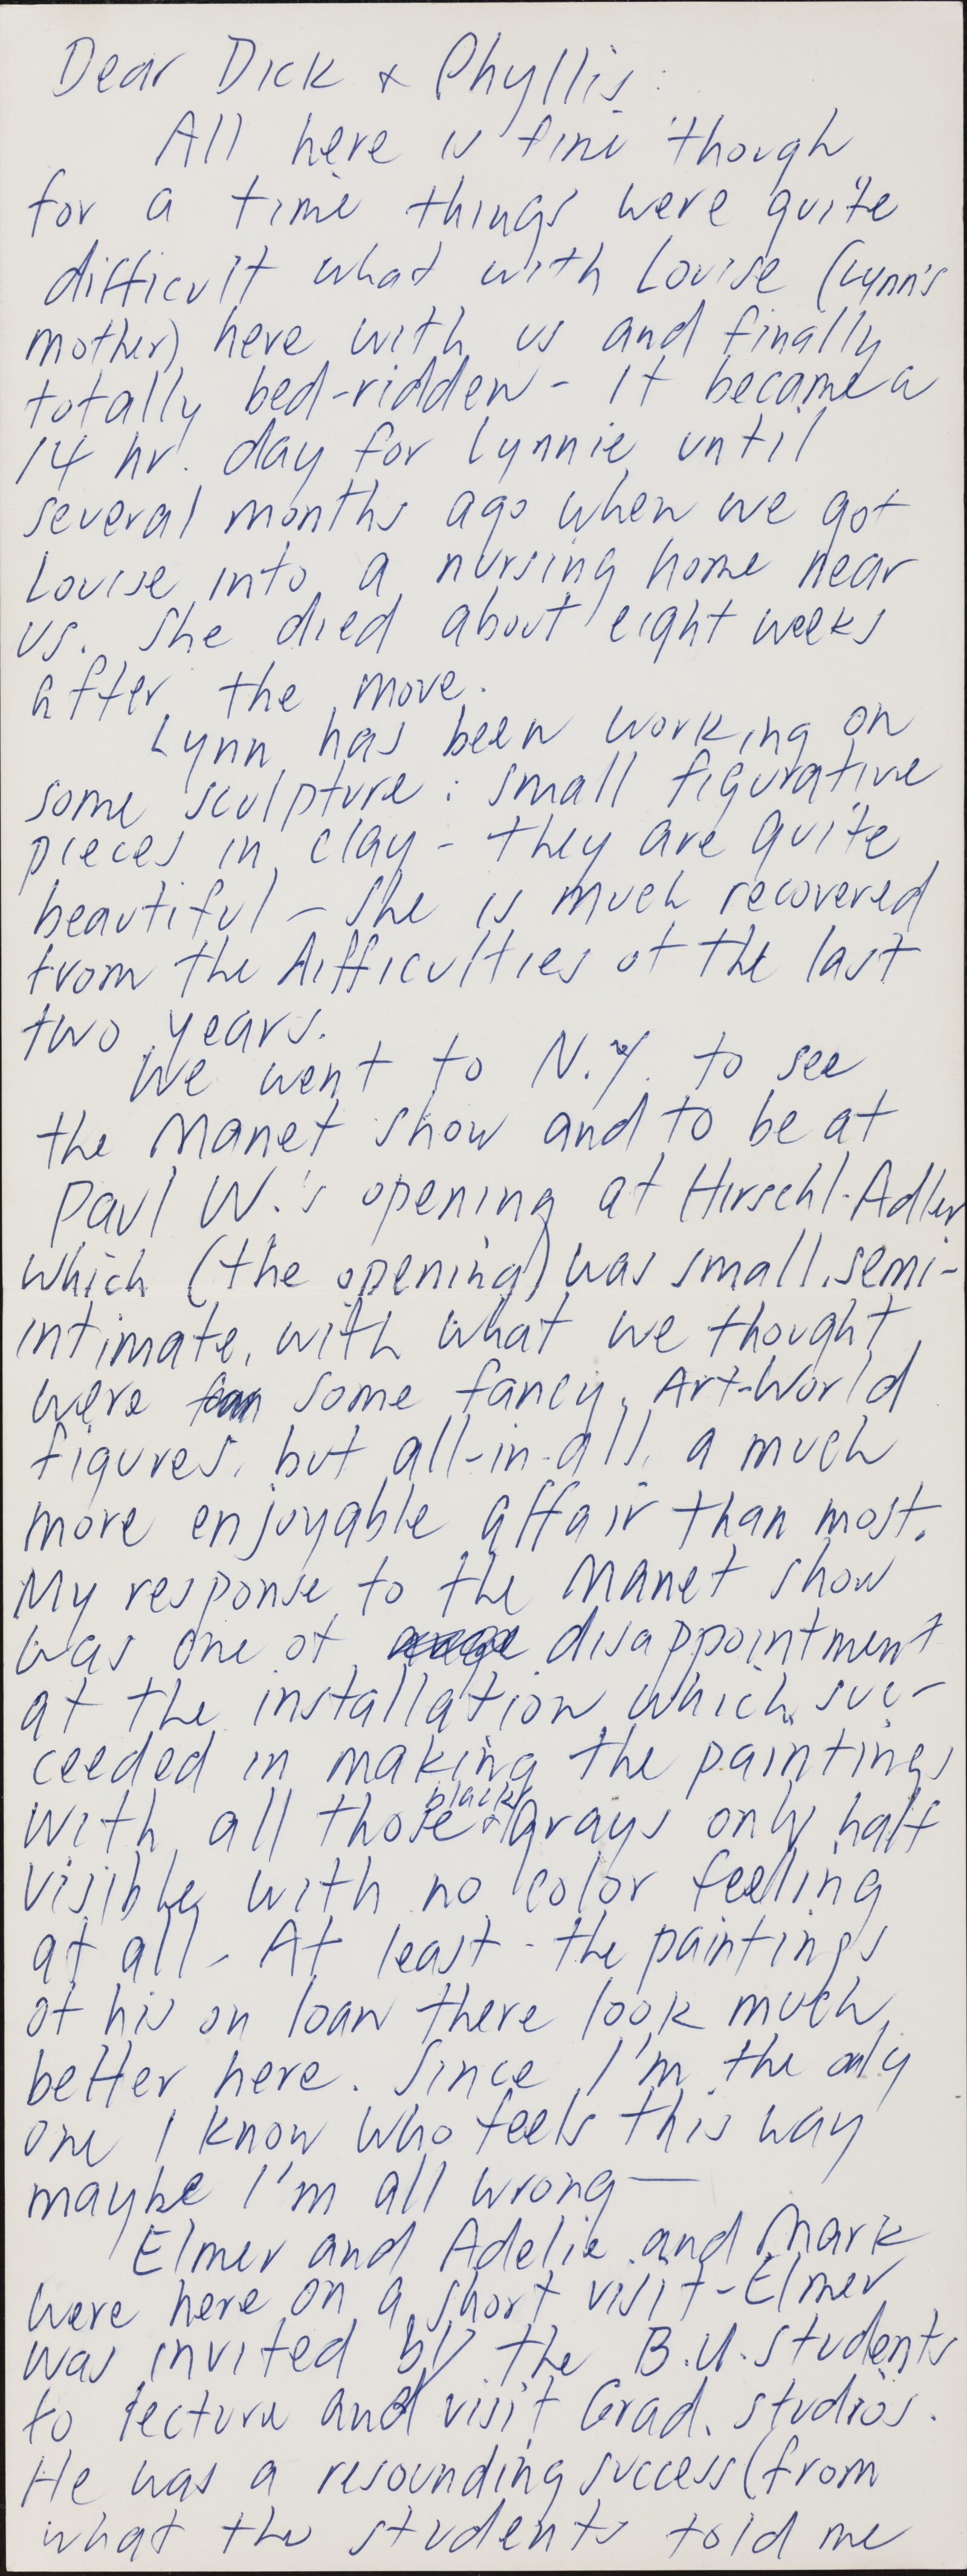 Dear Dick & Phyllis:
All here is fine though
for a time things were quite
difficult what with Louise (Lynn's
mother) here with us and finally
totally bed-ridden - It became a
14 hr. day for Lynnie until
several months ago when we got
Louise into a nursing home near
us. She died about eight weeks
after the move.
Lynn has been working on
some sculpture: small figurative
pieces in clay - they are quite
beautiful - She is much recovered
from the difficulties of the last
two years.
We went to N.Y. to see
the Manet show and to be at
Paul W.'s opening at Hirschl-Adler
which (the opening) was small, semi-
intimate, with what we thought
were some fancy, Art-World
figures, but all-in-all, a much
more enjoyable affair than most.
My response to the Manet show
was one of disappointment
at the installation which suc-
ceeded in making the paintings
with all those blacks & grays only half
visible, with no color feeling
at all - At least - the paintings
of his on loan there look much
better here. Since I'm the only
one I know who feels this way
maybe I'm all wrong —
Elmer and Adelie and Mark
were here on a short visit - Elmer
was invited by the B.U. students
to lecture and visit Grad. studios.
He was a resounding success (from
what the students told me